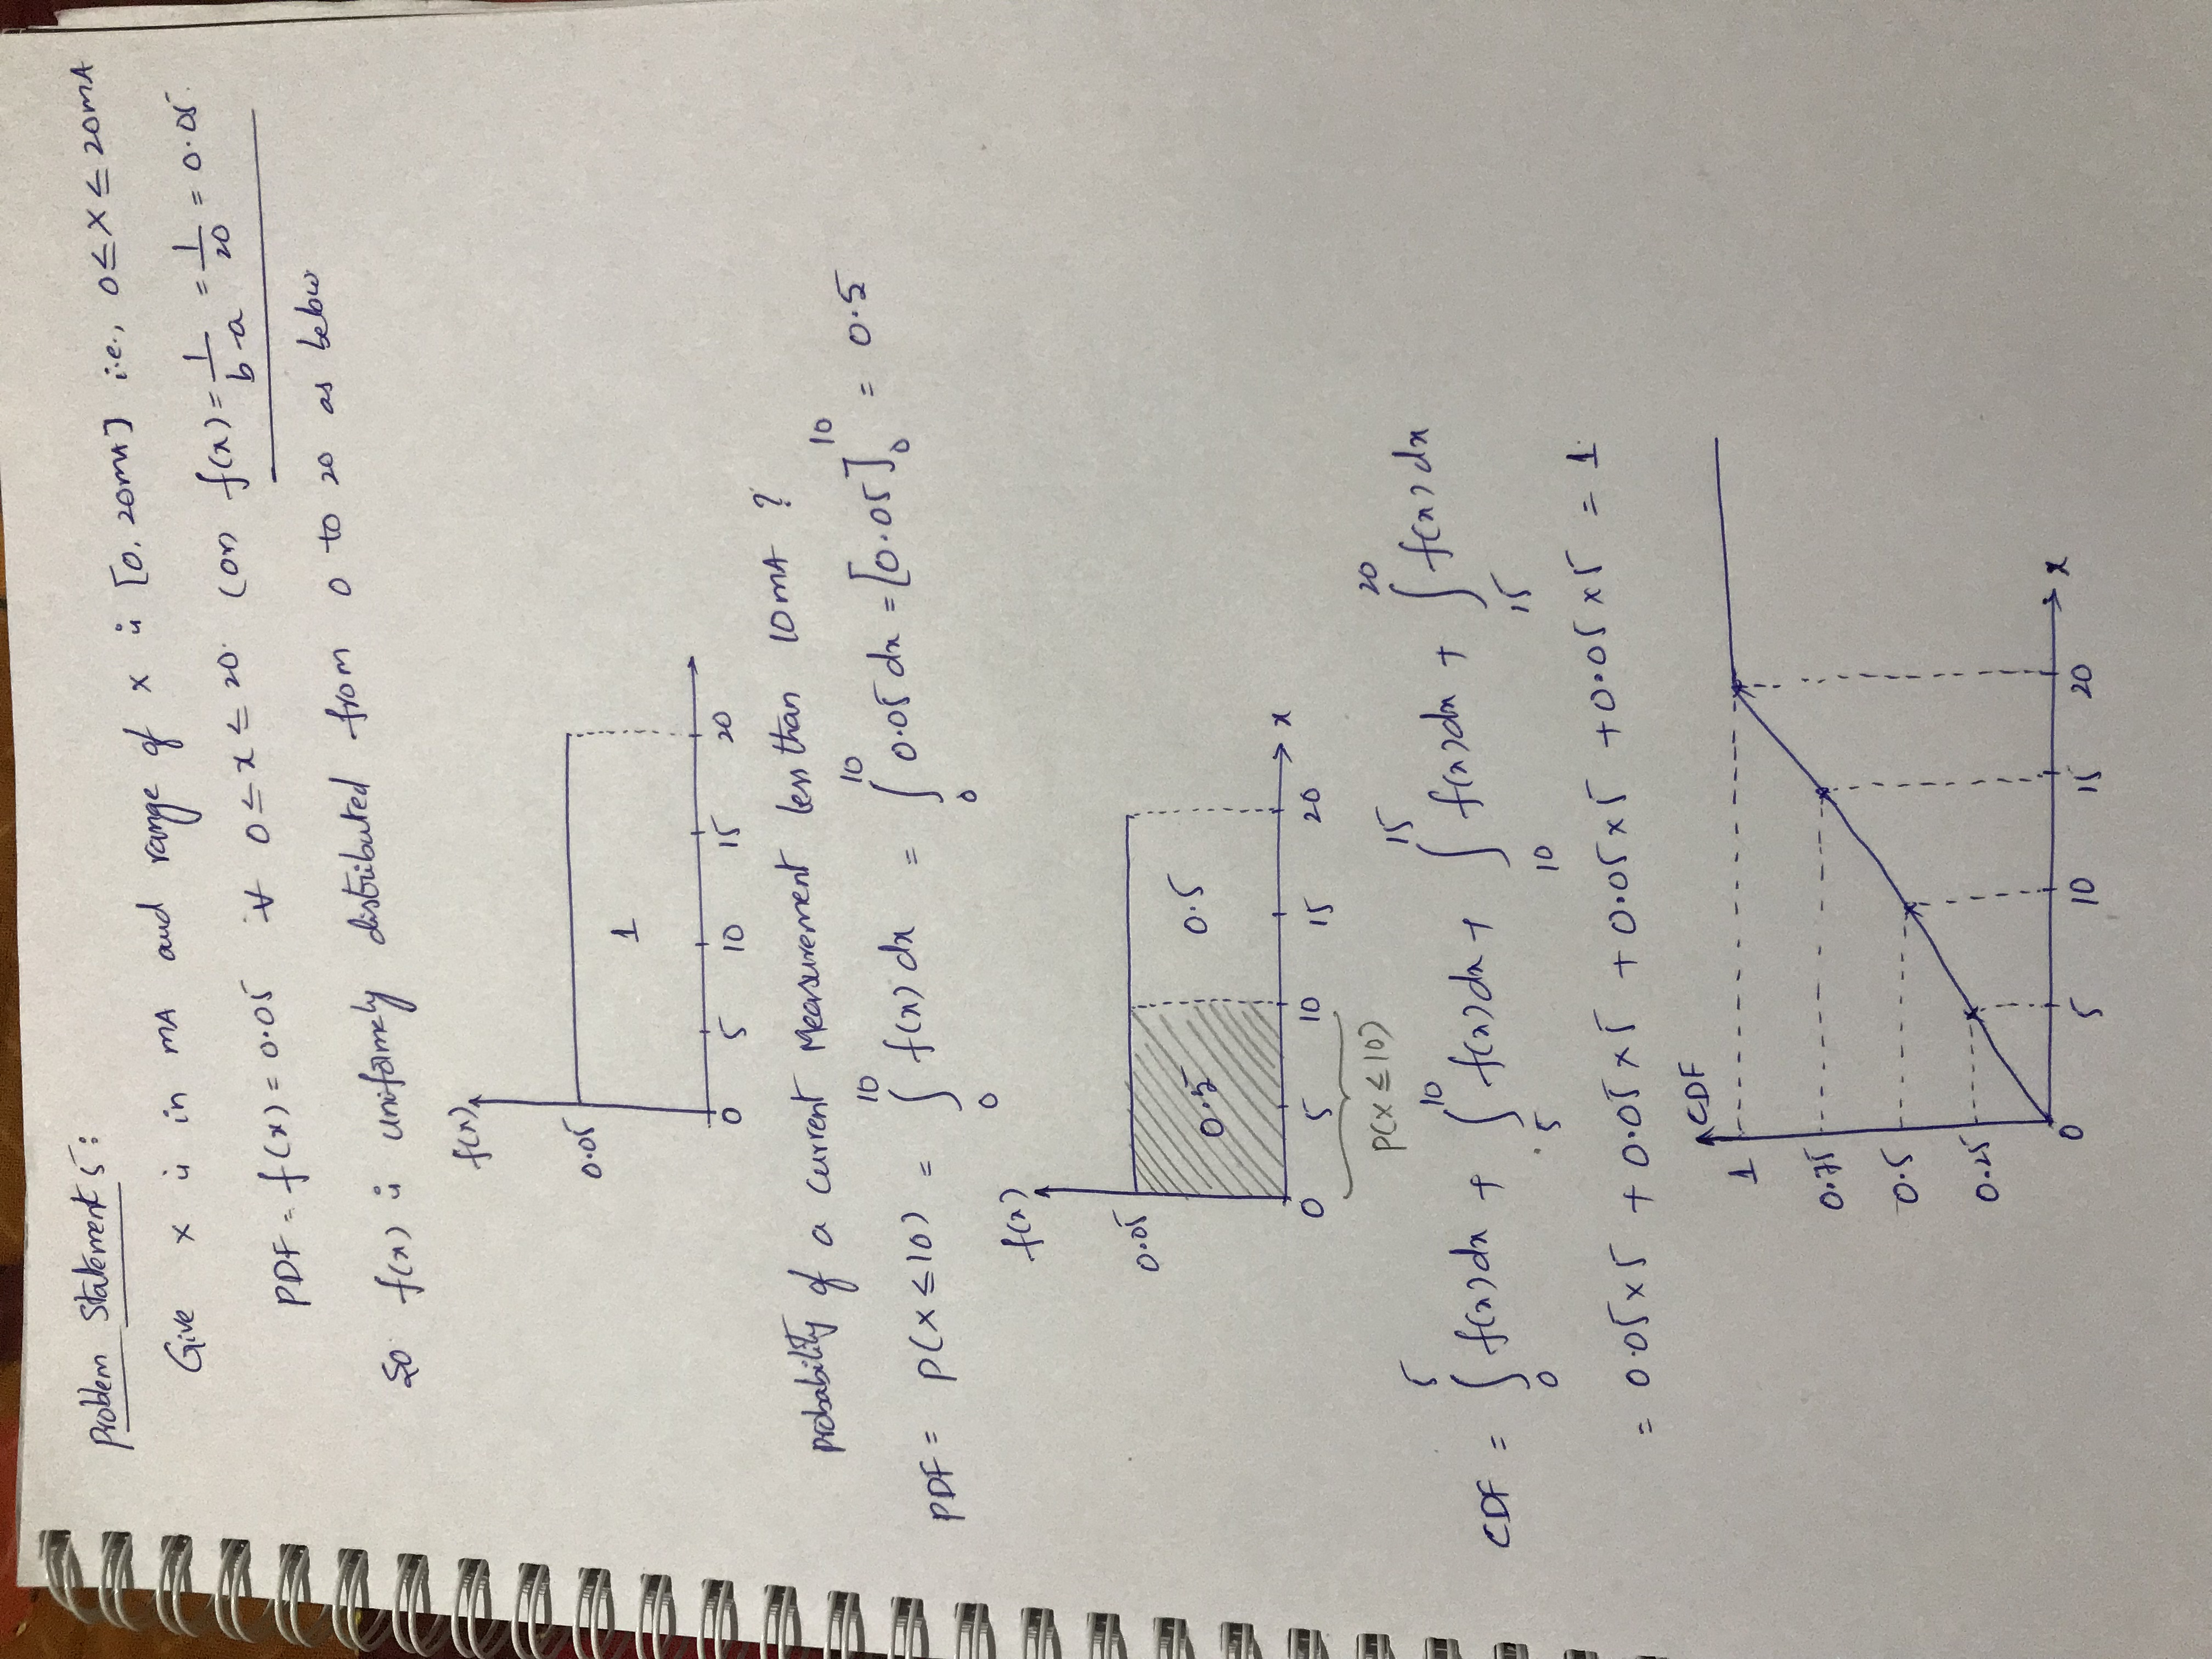 Problem Statement 5:
Give x is in mA and range of x is [0, 20mA] i.e., 0≤X≤20mA
PDF = f(x) = 0.05 ∀ 0≤x≤20. (or) f(x) = 1/(b-a) = 1/20 = 0.05.
So f(x) is uniformely distributed from 0 to 20 as below
f(x)
0.05
1
0 5 10 15 20
probability of a current Measurement less than 10mA ?
PDF = P(X≤10) = ∫₀¹⁰ f(x) dx = ∫₀¹⁰ 0.05 dx = [0.05]₀¹⁰ = 0.5
f(x)
0.05
0.5 0.5
0 5 10 15 20 x
P(X≤10)
CDF = ∫₀⁵ f(x)dx + ∫₅¹⁰ f(x)dx + ∫₁₀¹⁵ f(x)dx + ∫₁₅²⁰ f(x)dx
= 0.05×5 + 0.05×5 + 0.05×5 + 0.05×5 = 1.
CDF
1
0.75
0.5
0.25
0 5 10 15 20 x